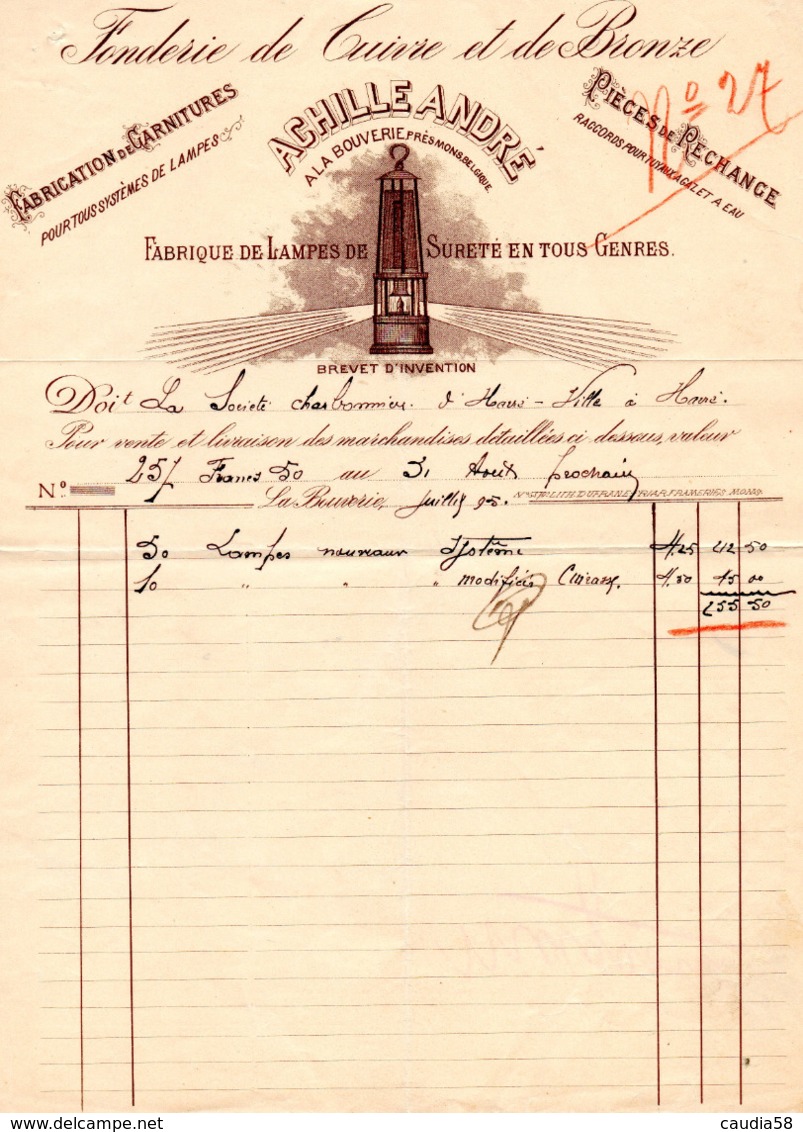 Fonderie de Cuivre et de Bronze
No 27
FABRICATION DE GARNITURES
POUR TOUS SYSTÈMES DE LAMPES
ACHILLE ANDRÉ
A LA BOUVERIE, PRÈS MONS, BELGIQUE
PIÈCES DE RECHANGE
RACCORDS POUR TUYAUX A GAZ ET A EAU
FABRIQUE DE LAMPES DE SURETÉ EN TOUS GENRES.
BREVET D'INVENTION
Doit La Société charbonnière d'Havré-Ville à Havré.
Pour vente et livraison des marchandises détaillées ci dessous, valeur
No 257 Francs 50 au 31 Août prochain
La Bouverie, Juillet 95. LITH. DUFRANE-FRIART, FRAMERIES MONS
50 Lampes nouveaux système 4.25 212 50
10 " " " modifiés Cuirasse. 4.50 45 00
255 50
claudia58